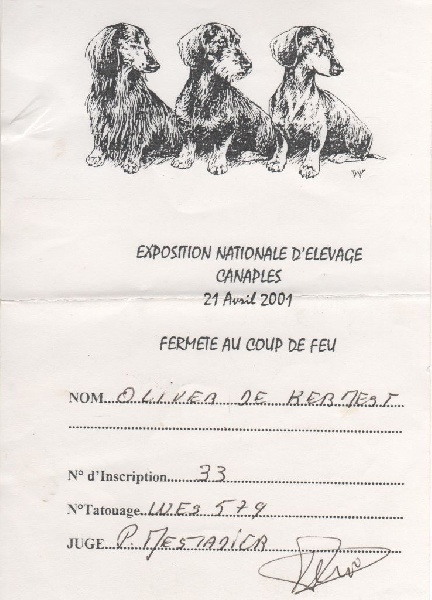 EXPOSITION NATIONALE D'ELEVAGE
CANAPLES
21 Avril 2001
FERMETE AU COUP DE FEU
NOM...OLIVER DE KERMEST
N° d'Inscription......33
N°Tatouage..WES 579
JUGE...P. MESTADIER